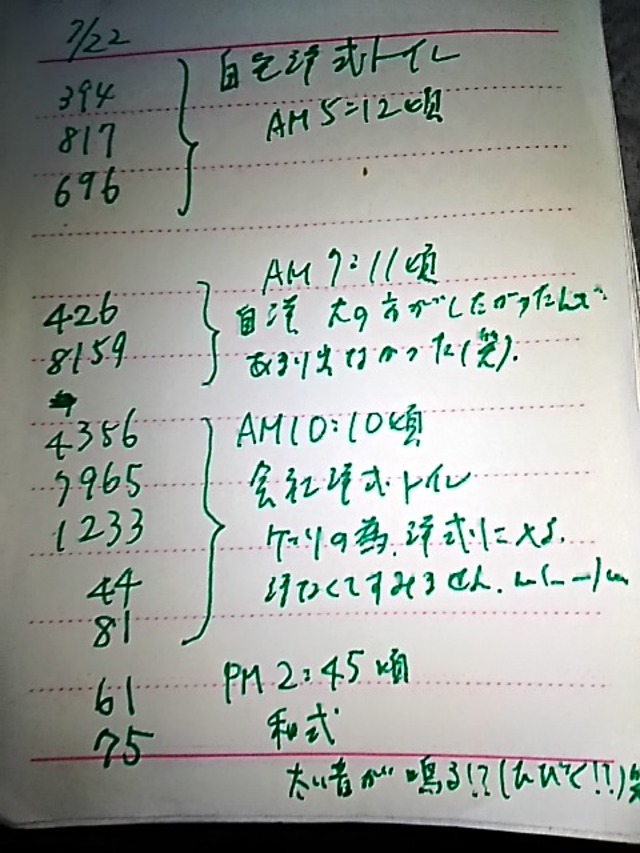 7/22
394 自宅洋式トイレ
817 AM 5:12頃
696
AM 7:11頃
426 自洋 大の方がしたかったんで
8159 あまり出なかった(笑).
4356 AM10:10頃
7965 会社洋式トイレ
1233 ゲーリの為、洋式による.
44 汚なくてすみません. m(_ _)m
81
61 PM 2:45頃
75 和式
太い音が鳴る!?(ひびく!!)笑